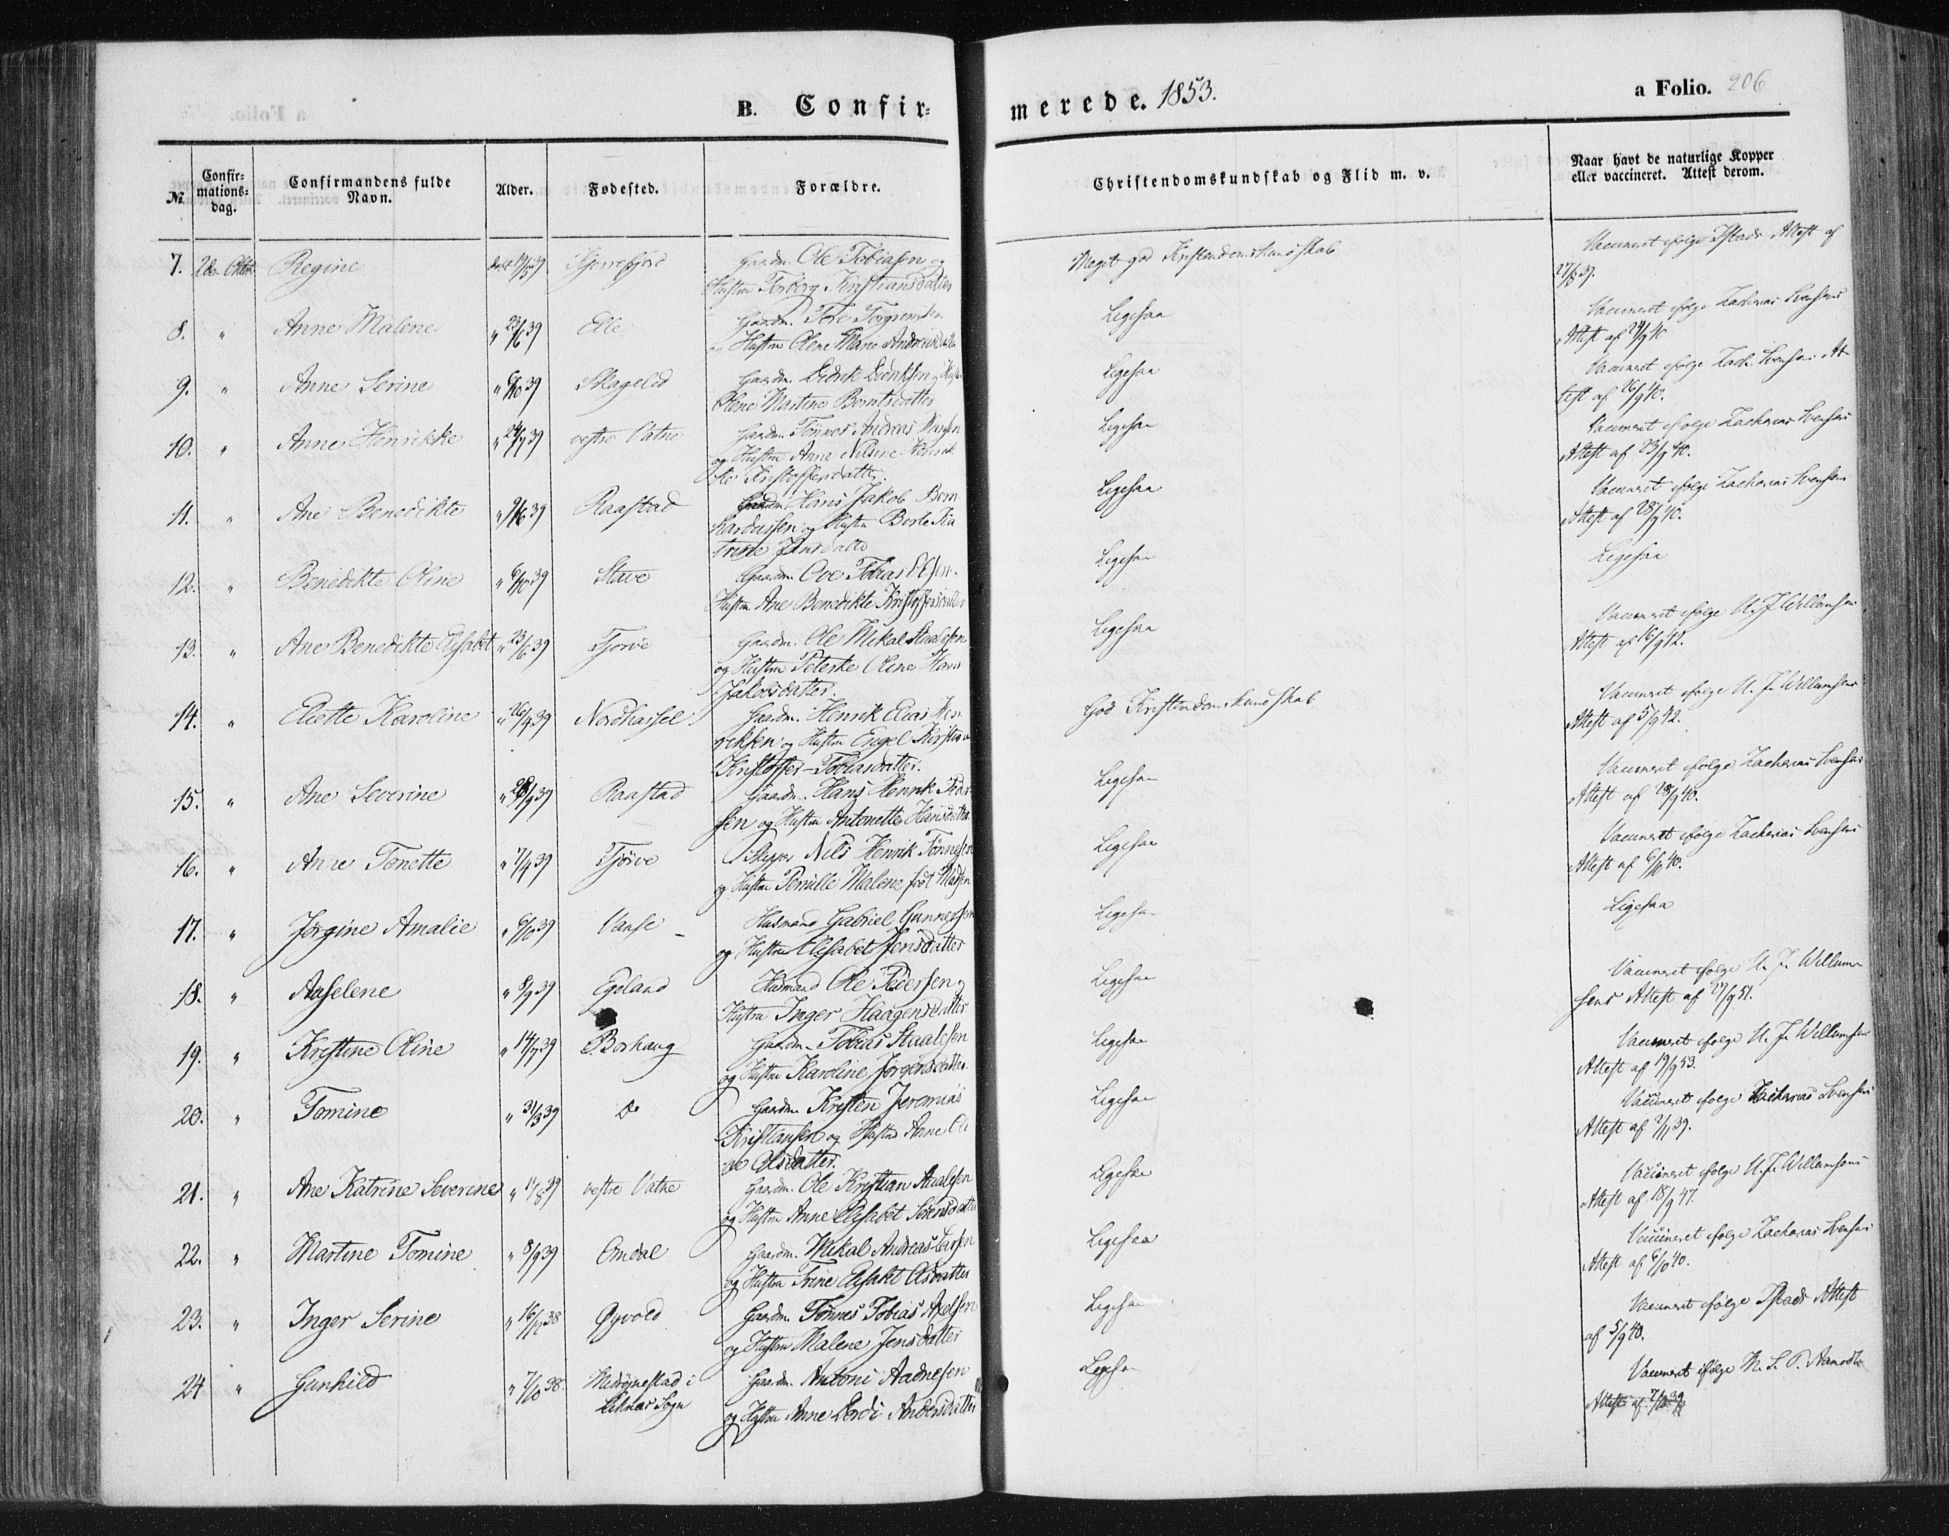 B. Confir-
merede. 1853.
a Folio. 206
No.
Confir-
mations-
dag.
Confirmandens fulde
Navn.
Alder.
Fødested.
Forældre.
Christendomskundskab og Flid m. v.
Naar havt de naturlige Kopper
eller vaccineret. Attest derom.
7. 2den Oktbr Regine Gaardm. Ole Tobiasen og
Hustru Torborg Kristiansdatter
Meget god Kristendomskundskab
Vaccineret ifølge Attest af
8. " Anne Malene " 23/6 39 Elle Gaardm. Tore
og Hustru Olene Marie
Ligesaa
Vaccineret ifølge Zacharias Svensens
Attest af 24/9 40
9. " Anne Serine Skageled Gaardm. Didrik Didriksen og Hustru
Olene Martine Berntsdatter
Ligesaa
Vaccineret ifølge Zach. Svensens At-
test af 26/9 40.
10. " Anne Henrikke vestre Vatne Gaardm. Tønnes Andreas
og Hustru Anne Nilsine Henrik-
ke Kristoffersdatter.
Ligesaa
Vaccineret ifølge Zacharias Svensens
Attest af 23/9 40.
11. " Ane Benedikte Raastad Hans Jakob Bern-
hardussen og Hustru Berte Ka-
trine Jansdatter
Ligesaa
Vaccineret ifølge Zacharias Svensens
Attest af 28/9 40.
12. " Benedikte Oline " 6/10 39 Stave Gaardm. Ove Tobias
Hustru Ane Benedikte Kristoffersdatter
Ligesaa
Ligesaa
13. " Ane Benedikte Elisabet " 23/6 39 Tjørve Gaardm. Ole Mikal Staalesen
og Hustru Peterke Oline Hans
Jakobsdatter.
Ligesaa
Vaccineret ifølge U. J. Willumsens
Attest af 16/9 42.
14. " Eliette Karoline " 26/4 39 Nordhassel Gaardm. Henrik Elias Hen-
riksen og Hustru Engel Kirstine
Kristoffer-Tobiasdatter.
God Kristendomskundskab
Vaccineret ifølge U. J. Willumsens
Attest af 5/9 42.
15. " Ane Severine Raastad Gaardm. Hans Henrik
sen og Hustru Antonette Hansdatter
Ligesaa
Vaccineret ifølge Zacharias Svensens
Attest af 28/9 40.
16. " Anne Tonette " 7/4 39 Tjørve Skipper Nils Henrik Tønnesen
og Hustru Pernille Malene født Madsen
Ligesaa
Vaccineret ifølge Zacharias Svensens
Attest af 6/10 40.
17. " Jørgine Amalie " 6/10 39 Vanse Husmand Gabriel Gunnersen
og Hustru Elisabet Jensdatter
Ligesaa
Ligesaa
18. " Aaselene " 8/9 39 Egeland Husmand Ole Pedersen og
Hustru Inger Haagensdatter
Ligesaa
Vaccineret ifølge U. J. Willum-
sens Attest af 27/9 51.
19. " Kristine Oline " 14/7 39 Borhaug Gaardm. Tobias Staalesen
og Hustru Karoline Jørgensdatter
Ligesaa
Vaccineret ifølge U. J. Willumsens
Attest af 19/9 53.
20. " Tomine " 31/3 39 Do Gaardm. Kristen Jeremias
Kristiansen og Hustru Anne Oli-
ne Olsdatter.
Ligesaa
Vaccineret ifølge Zacharias Svensens
Attest af 2/11 39.
21. " Ane Katrine Severine " 11/8 39 vestre Vatne Gaardm. Ole Kristian Staalesen
og Hustru Anne Elisabet Sørensdatter
Ligesaa
Vaccineret ifølge U. J. Willumsens
Attest af 18/9 47.
22. " Martine Tomine " 8/9 39 Omdal Gaardm. Mikal Andreas Larsen
og Hustru Trine Elisabet Olsdatter
Ligesaa
Vaccineret ifølge Zacharias Svensens
Attest af 6/10 40.
23. " Inger Serine " 16/12 38 Øyvold Gaardm. Tønnes Tobias Axelsen
og Hustru Malene Jensdatter
Ligesaa
Vaccineret ifølge Attest
af 5/9 40.
24 " Gunhild " 7/10 38 i
Liknes Sogn Gaardm. Antoni Aadnesen
og Hustru Anne Andersdatter
Ligesaa
Vaccineret ifølge
Attest af